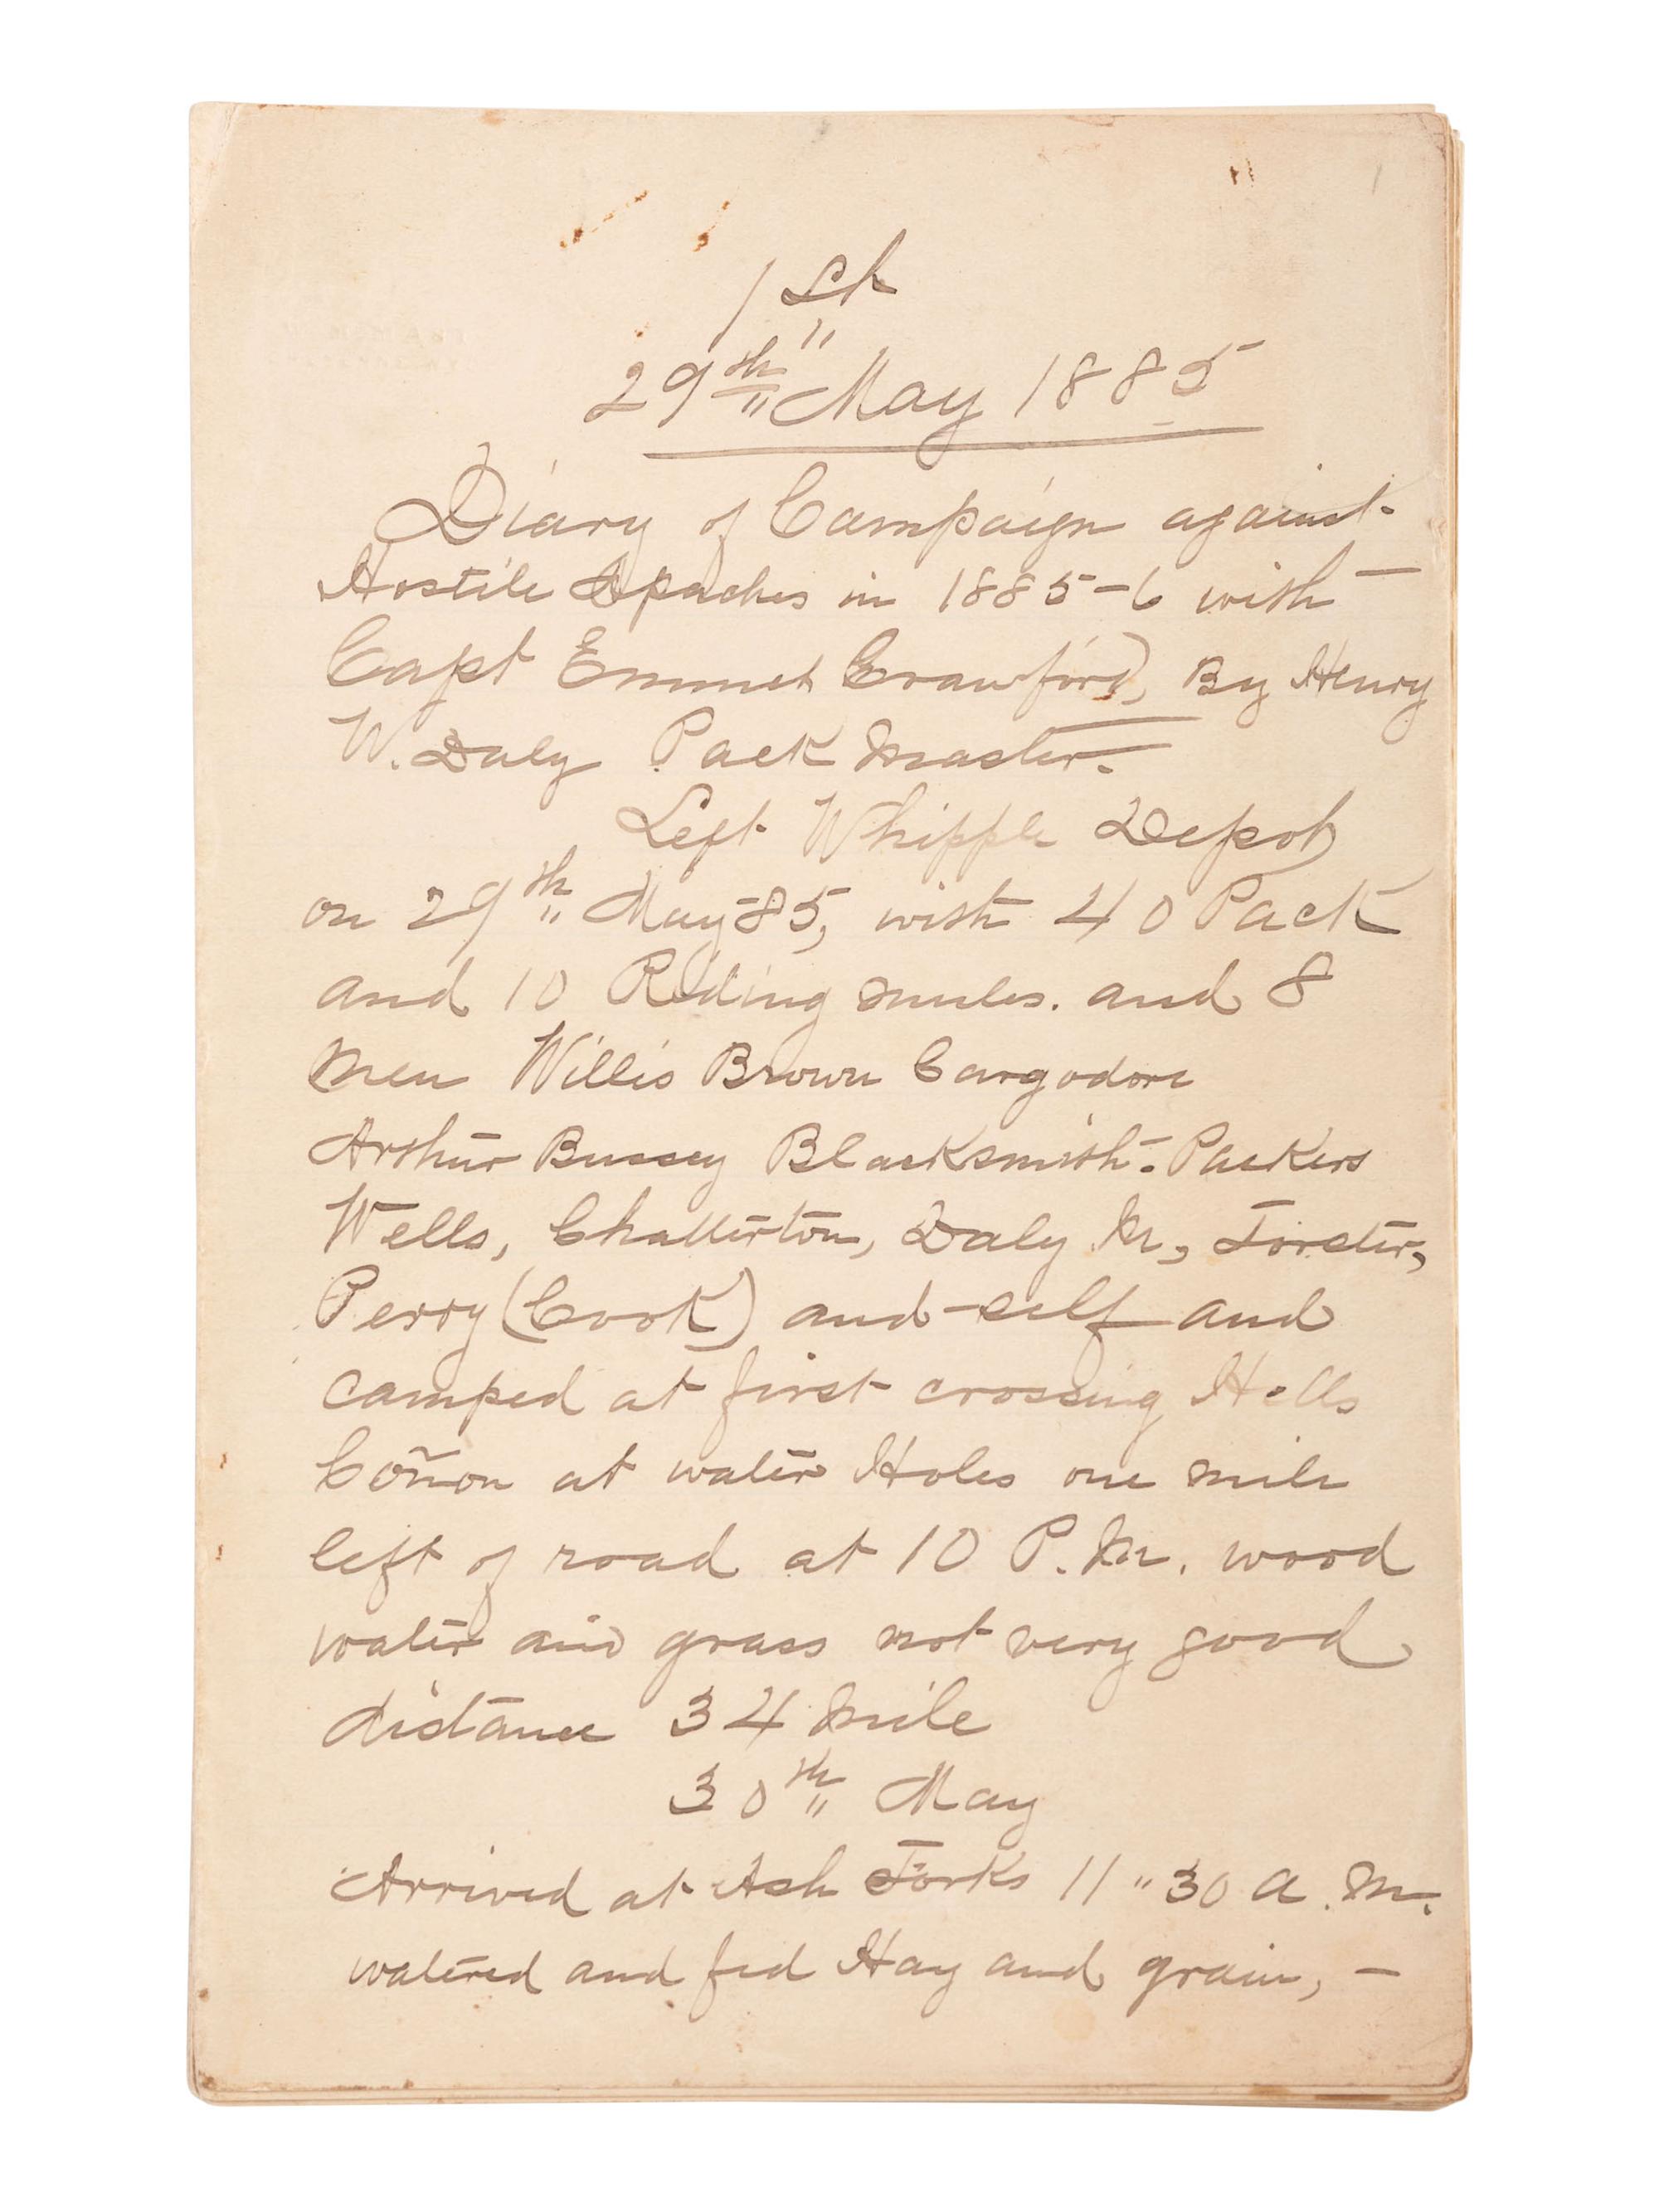 1
1st
29th May 1885
Diary of Campaign against
Hostile Apaches in 1885-6 with
Capt Emmet Crawford, By Henry
W. Daly Pack Master.
Left Whipple Depot
on 29th May-85, with 40 Pack
and 10 Riding mules. and 8
men Willis Brown Cargodore
Arthur Bussey Blacksmith. Packers
Wells, Chatterton, Daly M, Forster,
Perry (Cook) and self and
camped at first crossing Hells
Coñon at water Holes one mile
left of road at 10 P.M. wood
water and grass not very good
distance 34 mile
30th May
Arrived at Ash Forks 11"30 A.M.
watered and fed Hay and grain, -